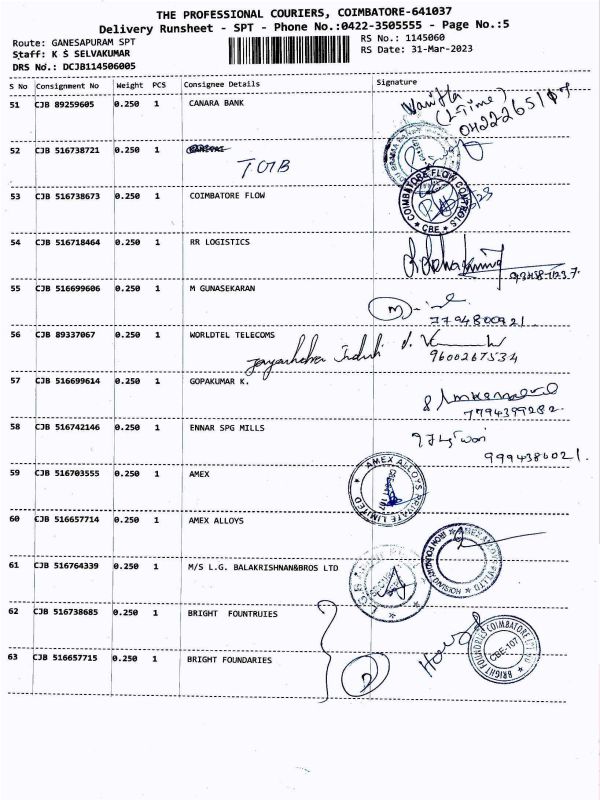 THE PROFESSIONAL COURIERS, COIMBATORE-641037
Delivery Runsheet - SPT - Phone No.:0422-3505555 - Page No.:5
Route: GANESAPURAM SPT
RS No.: 1145060
Staff: K S SELVAKUMAR
RS Date: 31-Mar-2023
DRS No.: DCJB114506005
S No Consignment No Weight PCS Consignee Details Signature
51 CJB 89259605 0.250 1 CANARA BANK
52 CJB 516738721 0.250 1
53 CJB 516738673 0.250 1 COIMBATORE FLOW
COIMBATORE FLOW CONTROLS
CBE
54 CJB 516718464 0.250 1 RR LOGISTICS
55 CJB 516699606 0.250 1 M GUNASEKARAN
7794800921.
56 CJB 89337067 0.250 1 WORLDTEL TELECOMS
9600267534
57 CJB 516699614 0.250 1 GOPAKUMAR K.
7794399282
58 CJB 516742146 0.250 1 ENNAR SPG MILLS
9994386021.
59 CJB 516703555 0.250 1 AMEX
AMEX ALLOYS PRIVATE LIMITED
60 CJB 516657714 0.250 1 AMEX ALLOYS
61 CJB 516764339 0.250 1 M/S L.G. BALAKRISHNAN&BROS LTD
62 CJB 516738685 0.250 1 BRIGHT FOUNTRUIES
63 CJB 516657715 0.250 1 BRIGHT FOUNDARIES
CBE-107